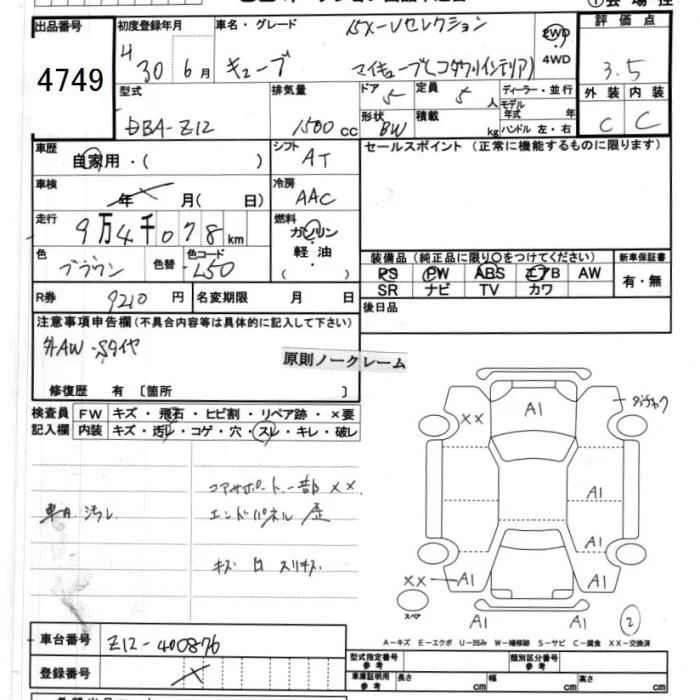 出品番号
4749
初度登録年月
H 30 6月
車名・グレード
15X-Vセレクション
キューブ
マイキューブ(コダワリインテリア)
2WD
4WD
評価点
3.5
外装 内装
C C
型式
DBA-Z12
排気量
1500 cc
ドア 5
定員 5 人
形状 BW
積載 kg
ディーラー・並行
モデル年式 年
ハンドル 左・右
車歴
自家用・( )
シフト AT
車検
年 月( 日)
冷房 AAC
走行
9万4千078km
燃料
ガソリン
軽油
( ・ )
色 ブラウン
色替
色コード L50
R券 9210円
名変期限 月 日
セールスポイント(正常に機能するものに限ります)
装備品(純正品に限り〇をつけてください)
PS PW ABS エアB AW
SR ナビ TV カワ
新車保証書
有・無
後日品
注意事項申告欄(不具合内容等は具体的に記入して下さい)
外AW・Sタイヤ
原則ノークレーム
修復歴 有〔箇所 〕
検査員記入欄
FW キズ・飛石・ヒビ割・リペア跡・×要
内装 キズ・汚レ・コゲ・穴・スレ・キレ・破レ
車内汚レ
コアサポート一部××
エンドパネル歪
キズ凹スリキズ
××
A1
A1
A1
A1
××
A1
A1
A1
スペア
2
A-キズ E-エクボ U-凹み W-補修跡 S-サビ C-腐食 XX-交換済
車台番号
Z12-400876
登録番号
型式指定番号 参考
類別区分番号 参考
車庫証明用 参考
長さ cm
幅 cm
高さ cm